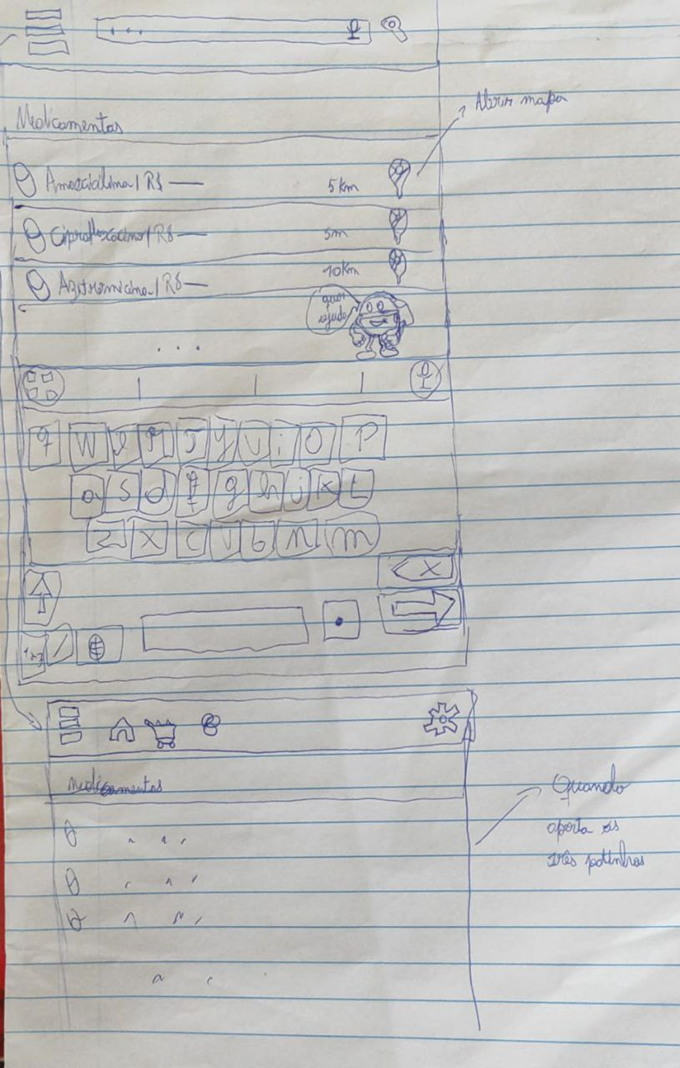 ...
Abrir mapa
Medicamentos
Amoxicilina / R$ — 5km
Ciprofloxacino / R$ — 5m
Azitromicina / R$ — 10km
quer
ajuda
...
q W e R T y u i O P
a S d f g h j k L
Z X C V b n m
X
123 /
Medicamentos
Quando
aperta os
três potinhos